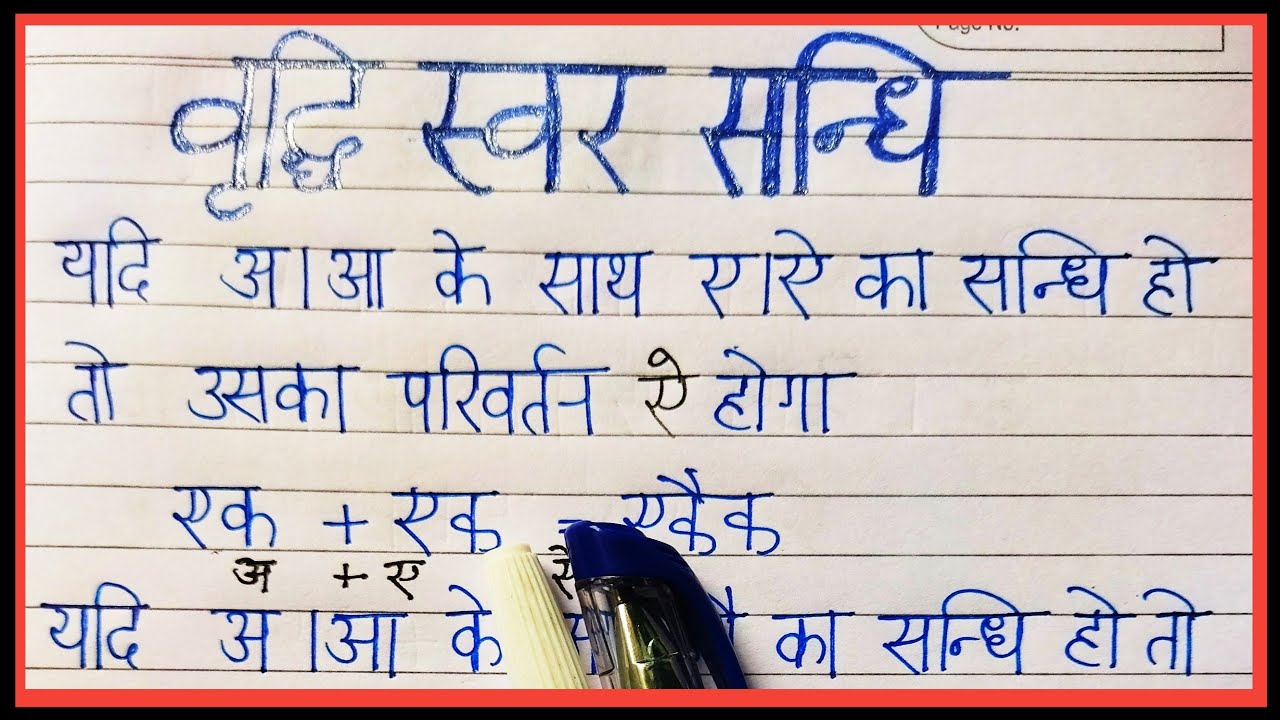 Page No.
वृद्धि स्वर सन्धि
यदि अ।आ के साथ ए।ऐ का सन्धि हो
तो उसका परिवर्तन ऐ होगा
एक + एक = एकैक
अ + ए
यदि अ।आ के का सन्धि हो तो